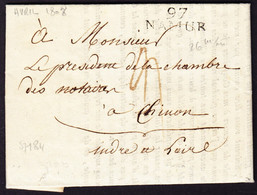 AVRIL 1808
97
NAMUR
À Monsieur
Le president de la chambre
des notaires
à Chinon
indre et Loire